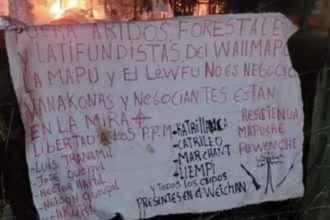 FUERA ARIDOS FORESTALES
Y LATIFUNDISTAS DEL WALLMAPU
LA MAPU Y EL LEWFU NO ES NEGOCIO
YANAKONAS Y NEGOCIANTES ESTAN
EN LA MIRA
LIBERTAD A LOS P.P.M
- LUIS TRANAMIL
- JOSE QUEIPUL
- HECTOR LLAITUL
- NELSON QUEUPIL
- KATRILLANCA
- CATRILEO
- MARCHANT
- LLEMPI
Y TODOS LOS CAIDOS
PRESENTES EN EL WEICHAN
RESISTENCIA
MAPUCHE
PEWENCHE